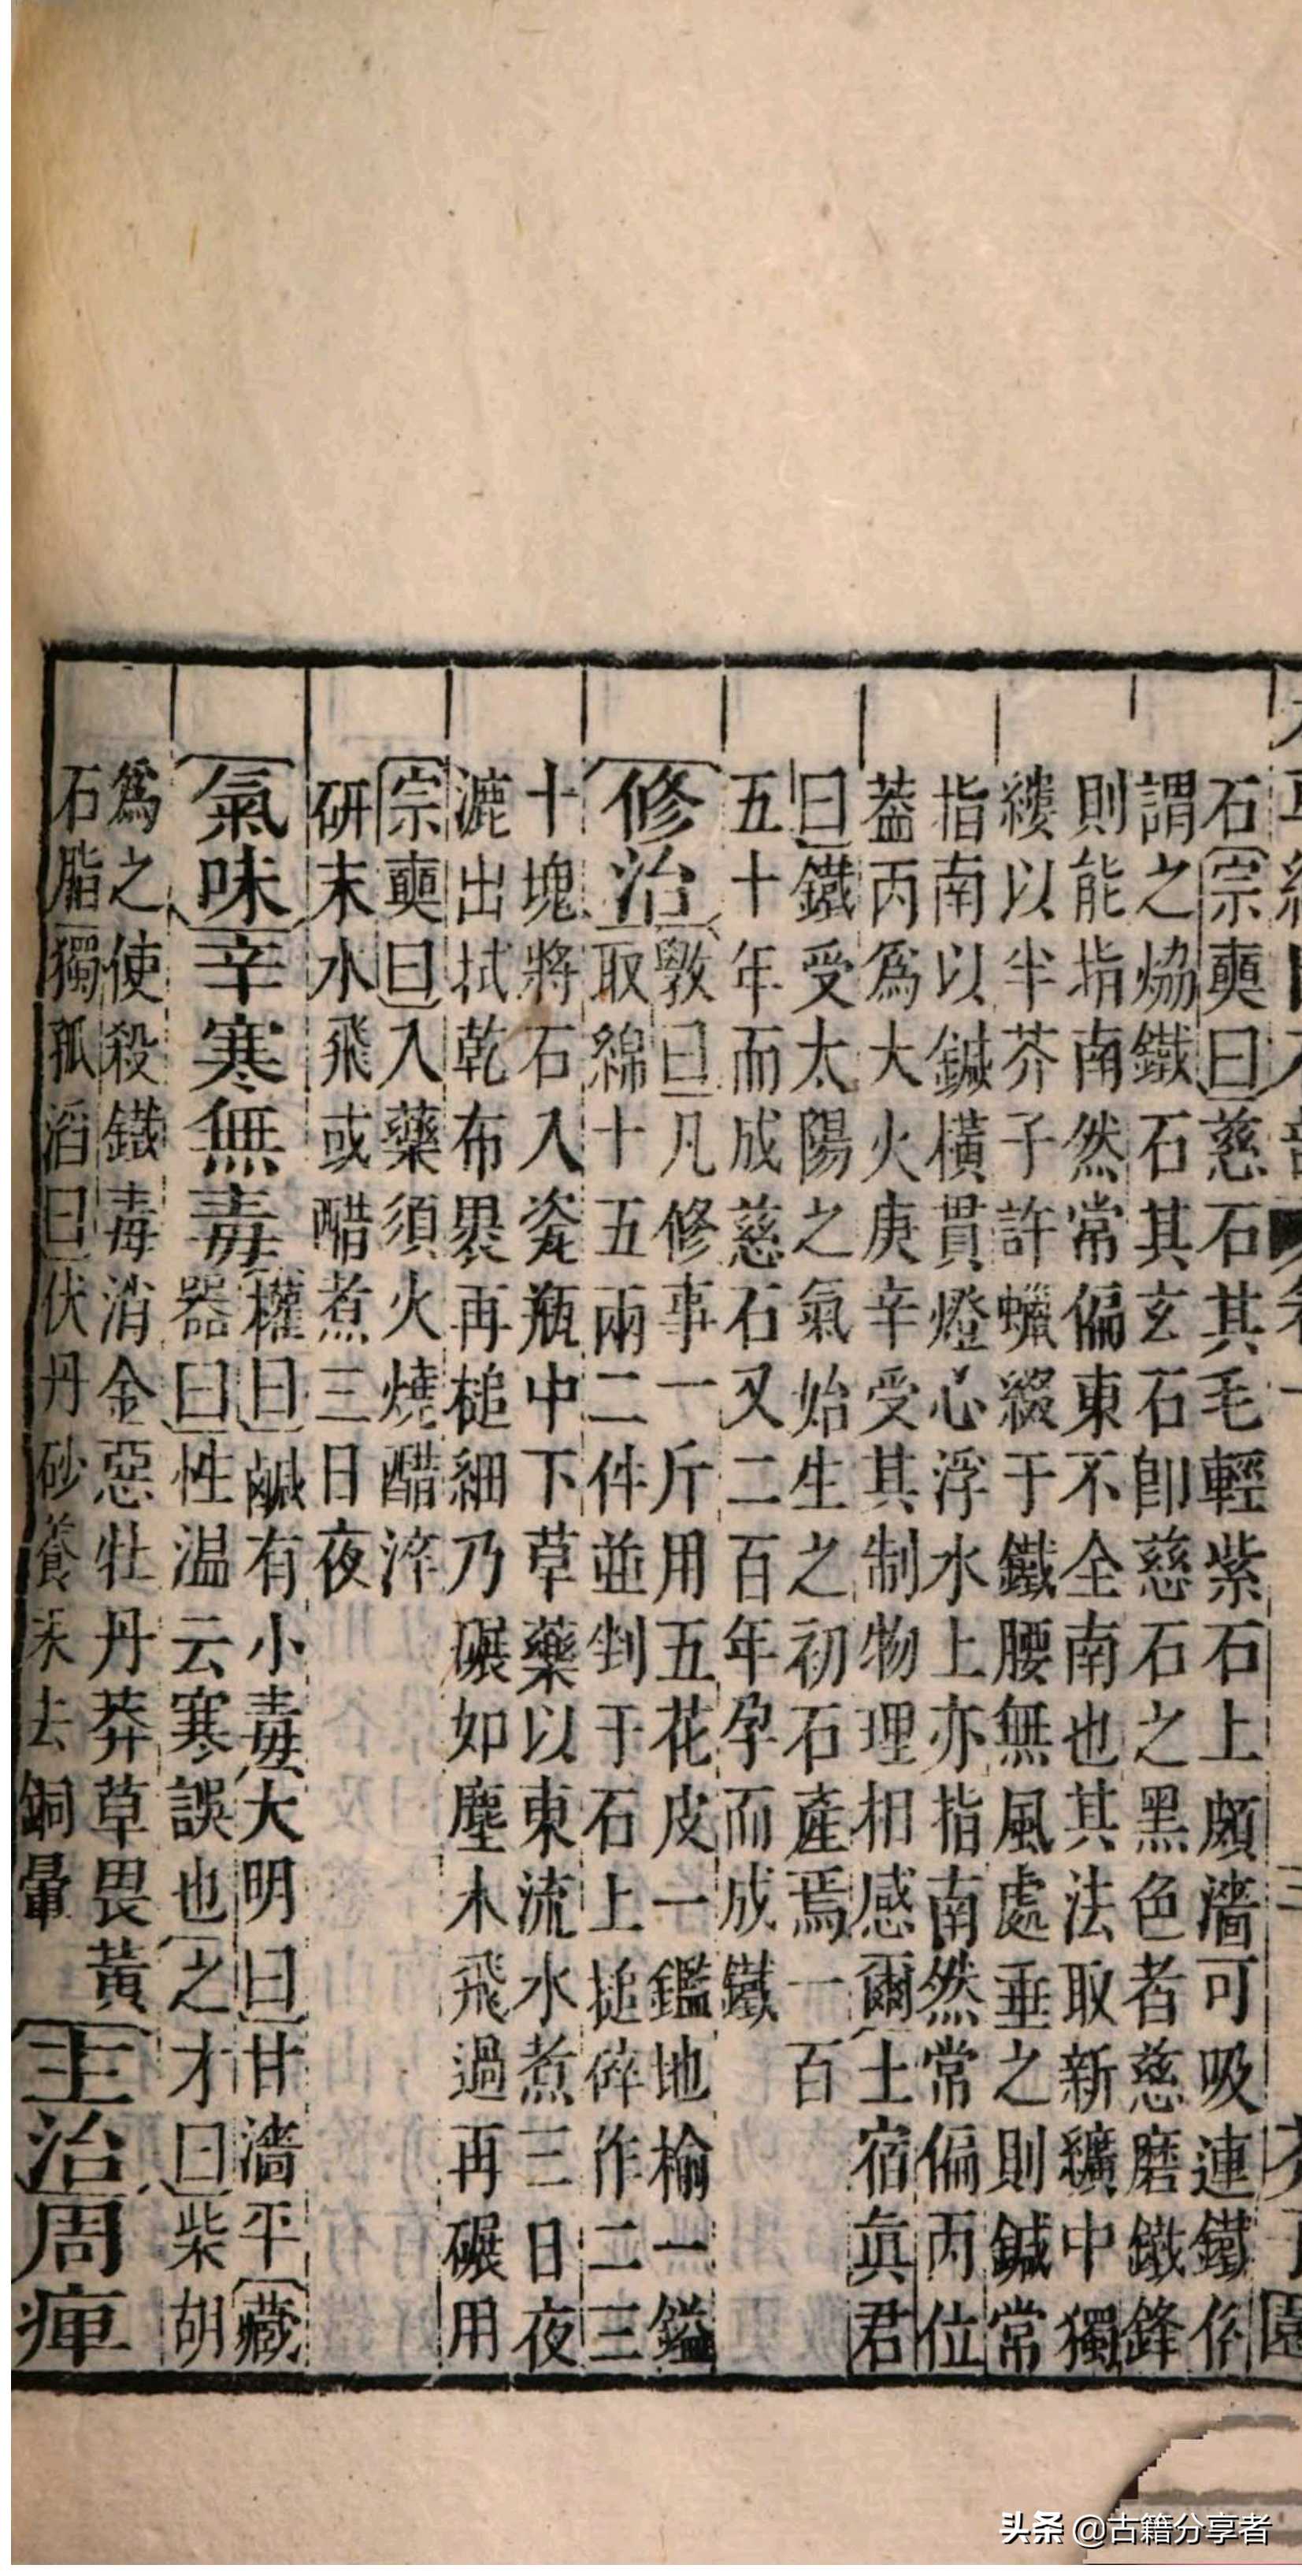 石宗奭曰慈石其毛輕紫石上頗濇可吸連鐵俗
謂之熁鐵石其玄石卽慈石之黑色者慈磨鐵鋒
則能指南然常偏東不全南也其法取新纊中獨
縷以半芥子許蠟綴于鐵腰無風處垂之則鍼常
指南以鍼橫貫燈心浮水上亦指南然常偏丙位
葢丙爲大火庚辛受其制物理相感爾土宿眞君
曰鐵受太陽之氣始生之初石產焉一百
五十年而成慈石又二百年孕而成鐵
修治
斆曰凡修事一斤用五花皮一鎰地榆一鎰
取綿十五兩二件並剉于石上搥碎作二三
十塊將石入瓷瓶中下草藥以東流水煮三日夜
漉出拭乾布裹再槌細乃碾如塵木飛過再碾用
宗奭曰入藥須火燒醋淬
研末水飛或醋煮三日夜
氣味辛寒無毒
權曰鹹有小毒大明曰甘濇平藏
器曰性温云寒誤也之才曰柴胡
爲之使殺鐵毒消金惡牡丹莽草畏黃
石脂獨孤滔曰伏丹砂養汞去銅暈
主治周痺
頭条 @古籍分享者